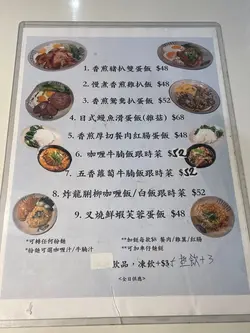 1. 香煎豬扒雙蛋飯 $48
2. 慢煮香煎雞扒飯 $48
3. 香煎鴛鴦扒蛋飯 $52
4. 日式鰻魚滑蛋飯(雜菇) $68
5. 香煎厚切餐肉紅腸蛋飯 $48
6. 咖喱牛腩飯跟時菜 $52
7. 五香蘿蔔牛腩飯跟時菜 $52
8. 炸龍脷柳咖喱飯/白飯跟時菜 $52
9. 叉燒鮮蝦芙蓉蛋飯 $48
*可轉任何粉麵
*粉麵可選咖喱汁/牛腩汁
**如餸每款$6 餐肉/雞蛋/紅腸
**可加車仔麵餸
飲品,凍飲+$3
+3
<全日供應>